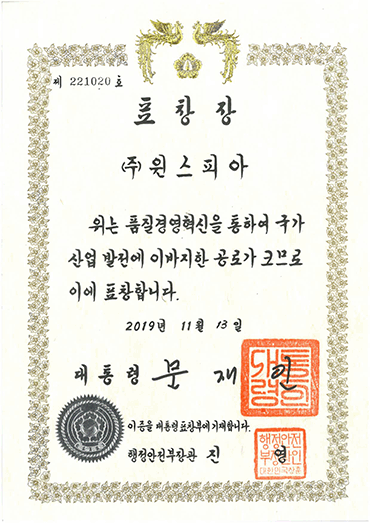 제 221020 호
표 창 장
(주) 원스피아
위는 품질경영혁신을 통하여 국가
산업 발전에 이바지한 공로가 크므로
이에 표창합니다.
2019년 11월 13일
대통령 문 재 인
이 증을 대통령표창부에 기재합니다.
행정안전부장관 진 영
행정안전
부장관인